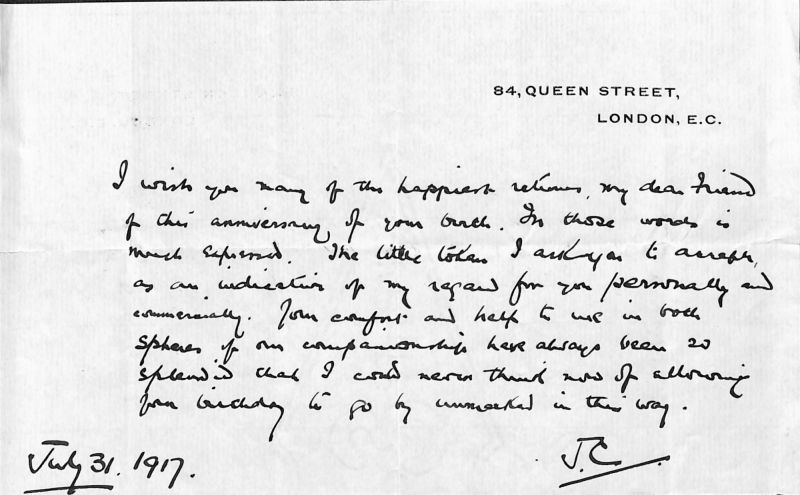 84, QUEEN STREET,
LONDON, E.C.
I wish you many of the happiest returns, my dear Friend
of this anniversary of your birth. In those words is
much expressed. The little token I ask you to accept,
as an indication of my regard for you personally and
commercially. Your comfort and help to me in both
spheres of our companionship have always been so
splendid that I could never think now of allowing
your birthday to go by unmarked in this way.
July 31. 1917.
J.C.